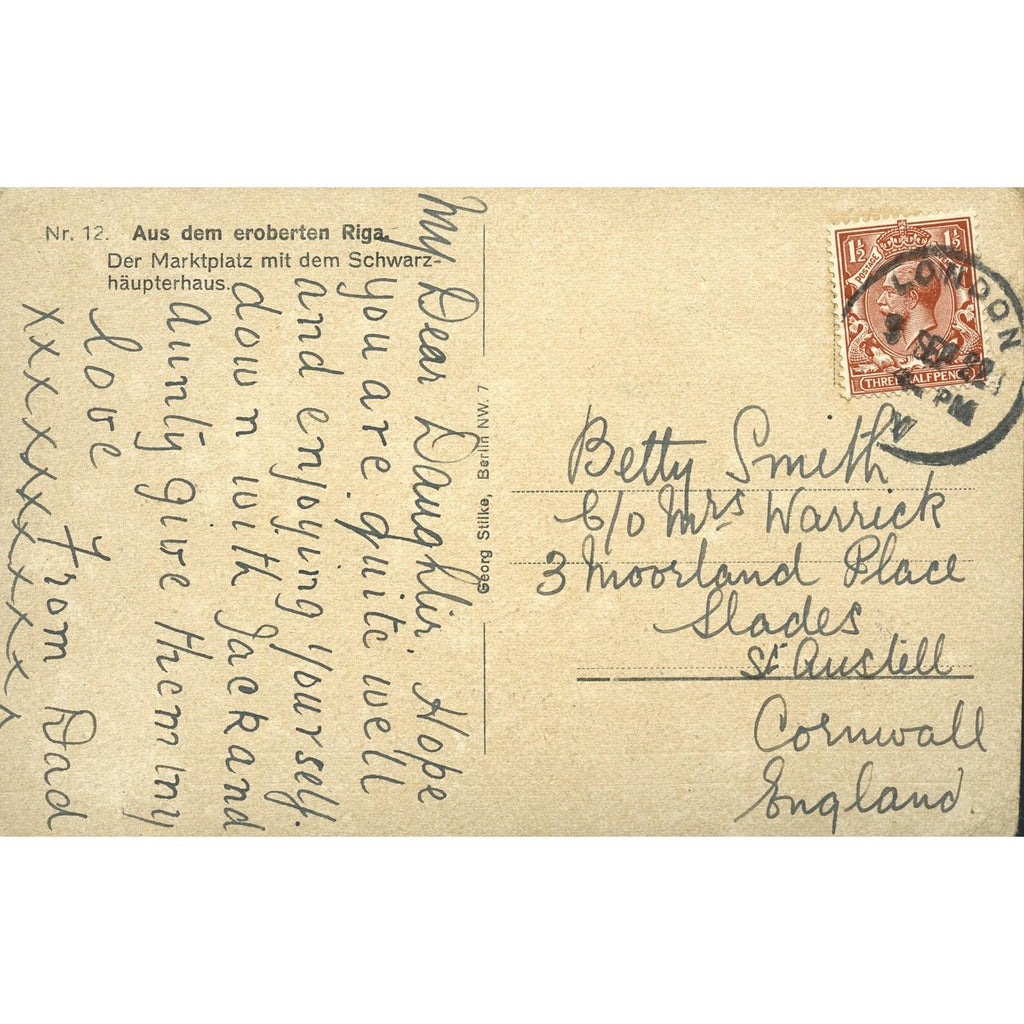 Nr. 12. Aus dem eroberten Riga.
Der Marktplatz mit dem Schwarz-
häupterhaus.
My Dear Daughtir. Hope
you are quite well
and enjoying yourself.
down with Jack and
Aunty give them my
love from Dad
xxxxxxxxxx
Georg Stilke, Berlin NW. 7
1½ 1½
POSTAGE
THREE HALFPENCE
LONDON
SEP
PM
W
Betty Smith
C/o Mrs Warrick
3 Moorland Place
Slades
St Austell
Cornwall
England.